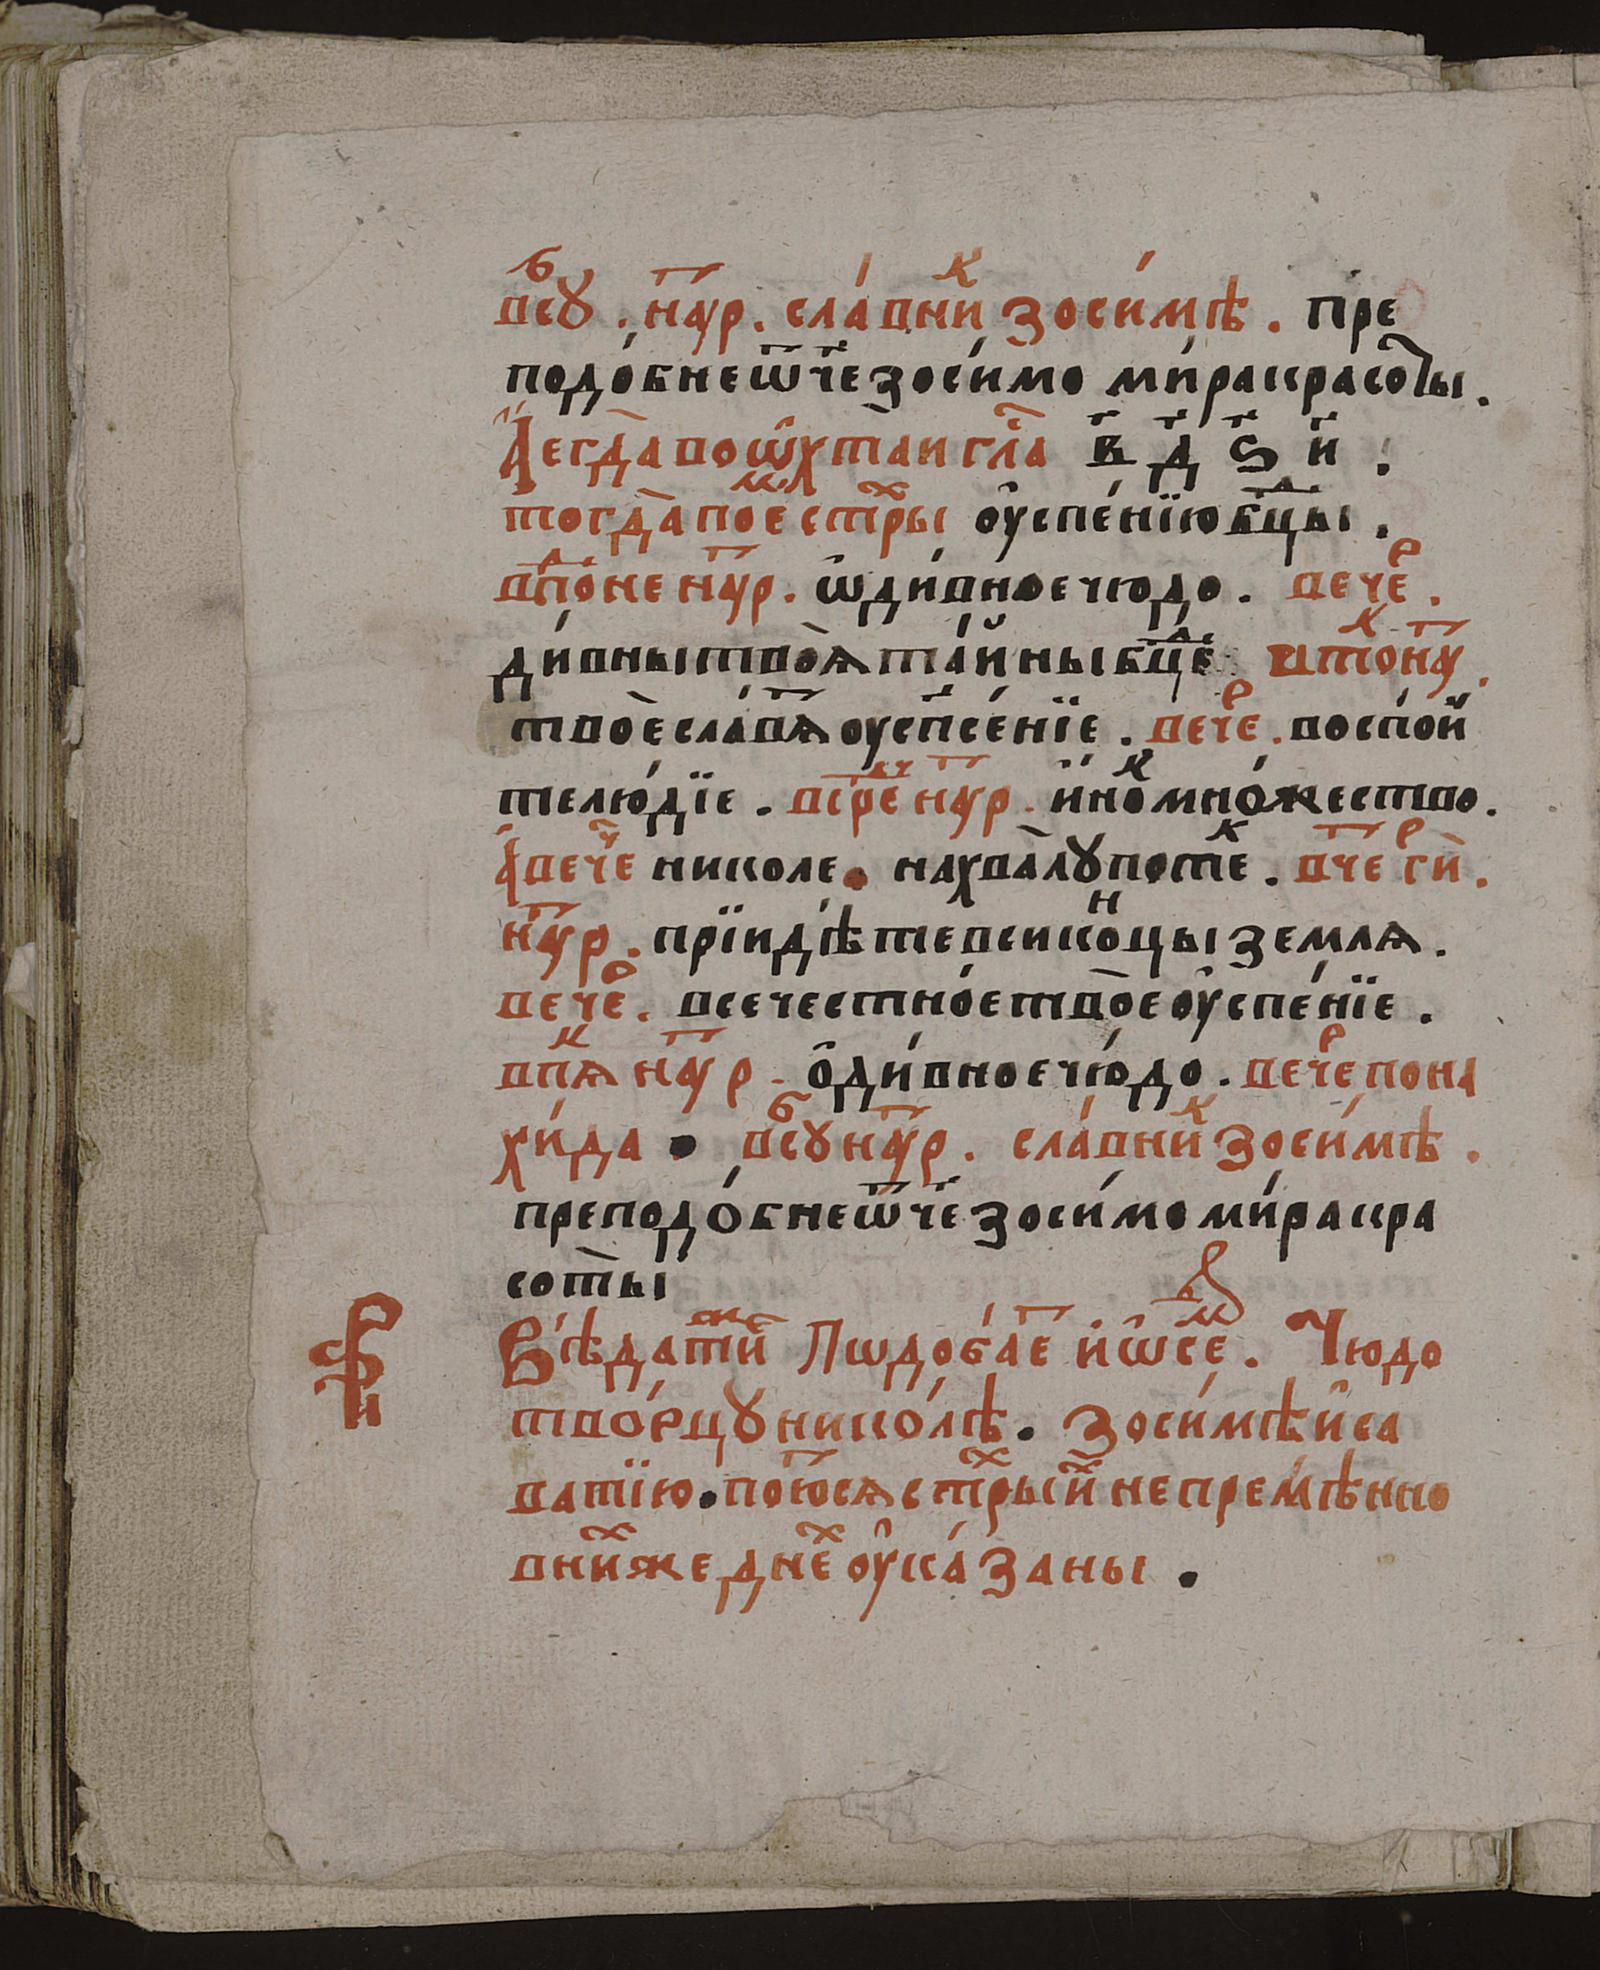 всꙋⷠ . наⷫ҇р . сла́вниⷦ зоси́мѣ . Пре
подо́бне ѿч҃е зоси́мо ми́ра красоты̀ .
А҆ егда̀ во ѿхтаи гл҃а в҃ д҃ ѕ҃ и҃ .
тогда̀ пое стрыⷯ ᲂу҆спе́нїю бц҃ы .
в поⷩ҇е наⷫ҇р . ѽ ди́вное чюдо . вечеⷬ .
ди́вны твоѧ̀ та́йны бц҃е втоⷦ наⷫ҇
твоѐ сла́вѧⷮ ᲂуспсе́нїе . вечеⷬ . воспо́й
те лю́дїе . в среⷣ наⷫ҇р . и҆но́ⷦ мно́жество .
А҆ вечеⷬ николе . на хвалꙋ потеⷦ . в чеⷮ гиⷬ .
наⷫ҇р . прїидѣ́те вси коⷩцы землѧ .
вечеⷬ . всечестно́е твоѐ ᲂу҆спе́нїе .
в пѧⷦ наⷫ҇р . ѽ ди́вное чю́до . вечеⷬ пона
хи́да . в сꙋⷠ наⷫ҇р . сла́вниⷦ зоси́мѣ .
преподо́бне ѿч҃е зоси́мо ми́ра кра
соты̀
Вѣ́датиⷤ Пѡдоба́еⷮ и҆ ѡ҆ сеⷨ . Чюдо
тво́рцꙋ нико́лѣ . Зоси́мѣ и҆ са
ватїю . поюⷮсѧ стрыⷯ иⷯ непремѣ́нно
в ниⷯже днеⷯ ᲂу҆ка́заны .